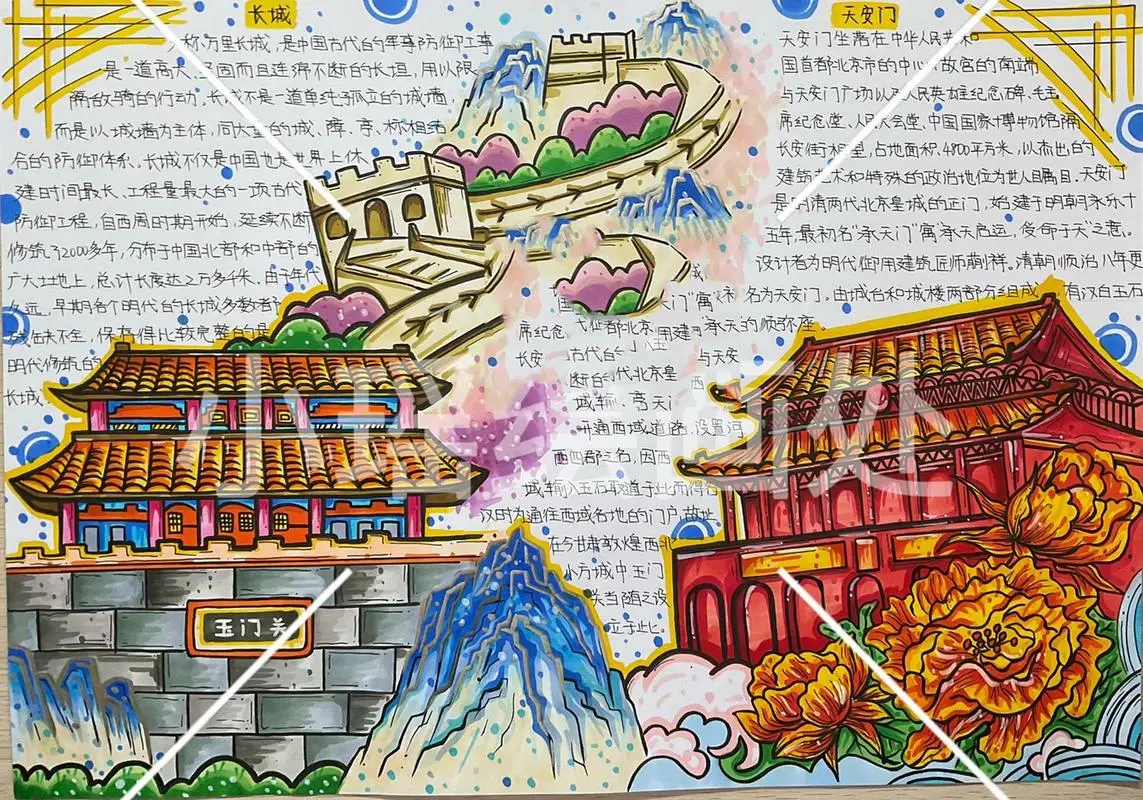 长城
称万里长城，是中国古代的军事防御工事
是一道高大、坚固而且连绵不断的长垣，用以限
隔敌骑的行动。长城不是一道单纯孤立的城墙
而是以城墙为主体，同大量的城、障、亭、标相结
合的防御体系。长城不仅是中国也是世界上休
建时间最长、工程量最大的一项古代
防御工程，自西周时期开始，延续不断
修筑了2000多年，分布于中国北部和中部的
广大土地上，总计长度达2万多千米。由于年代
久远，早期各个明代的长城多数者
残缺不全，保存得比较完整的是
明代修筑的
长城
天安门
天安门坐落在中华人民共和
国首都北京市的中心，故宫的南端
与天安门广场以及人民英雄纪念碑、毛主
席纪念堂、人民大会堂、中国国家博物馆隔
长安街相望，占地面积4800平方米，以杰出的
建筑艺术和特殊的政治地位为世人瞩目。天安门
是明清两代北京皇城的正门，始建于明朝永乐十
五年，最初名“承天门”寓“承天启运，受命于天”之意。
设计者为明代御用建筑匠师蒯祥。清朝顺治八年更
名为天安门，由城台和城楼两部分组成，有汉白玉石
的须弥座。
席纪念
长安
与天安
断的代北京皇
开通西域道路、设置河
西四郡之名，因西
域输入玉石取道于此而得名
汉时为通往西域各地的门户，故址
在今甘肃敦煌西北
小方城中玉门
关当随之设
立于此
玉门关